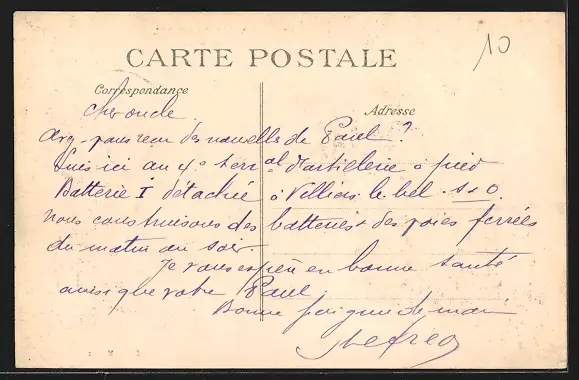 10
CARTE POSTALE
Correspondance
Adresse
Cher oncle
Avez-vous reçu des nouvelles de Paul ?
Suis ici au 4e terral d'artillerie à pied
Batterie I détachée à Villiers le bel. S & O
Nous construisons des batteries & des voies ferrées
du matin au soir
Je vous espère en bonne santé
ainsi que votre Paul.
Bonne poignée de main